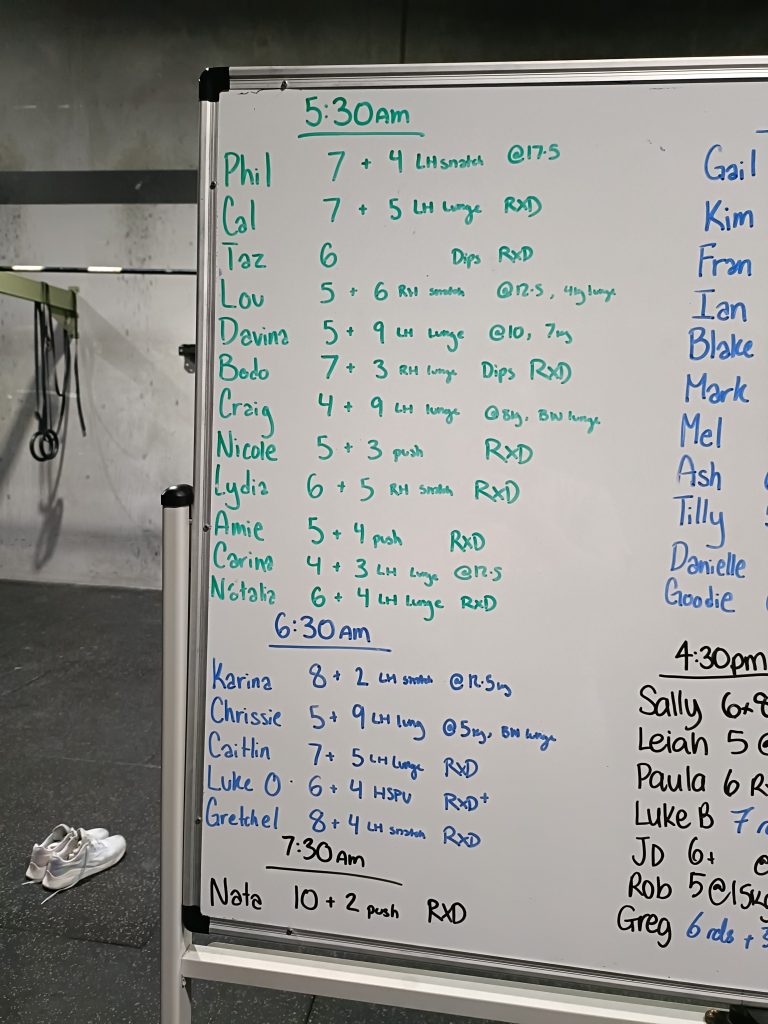 5:30am
Phil 7 + 4 LH snatch @17.5
Cal 7 + 5 LH lunge RXD
Taz 6 Dips RXD
Lou 5 + 6 RH snatch @12.5, 4kg lunge
Davina 5 + 9 LH lunge @10, 7kg
Bedo 7 + 3 RH lunge Dips RXD
Craig 4 + 9 LH lunge @8kg, BW lunge
Nicole 5 + 3 push RXD
Lydia 6 + 5 RH snatch RXD
Amie 5 + 4 push RXD
Carina 4 + 3 LH lunge @12.5
Natalia 6 + 4 LH lunge RXD
6:30am
Karina 8 + 2 LH snatch @12.5kg
Chrissie 5 + 9 LH lung @5kg, BW lunge
Caitlin 7 + 5 LH lunge RXD
Luke O 6 + 4 HSPU RXD+
Gretchel 8 + 4 LH snatch RXD
7:30am
Nata 10 + 2 push RXD
Gail
Kim
Fran
Ian
Blake
Mark
Mel
Ash
Tilly
Danielle
Goodie
4:30pm
Sally 6+8
Leiah 5 @
Paula 6 R
Luke B 7
JD 6+ @
Rob 5 @15kg
Greg 6 rds + 3